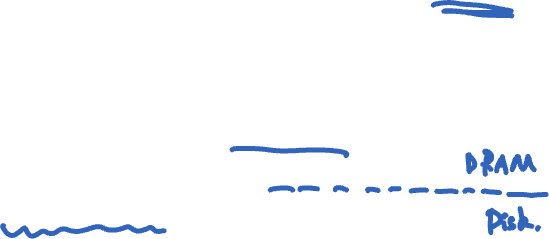 DRAM
Disk.